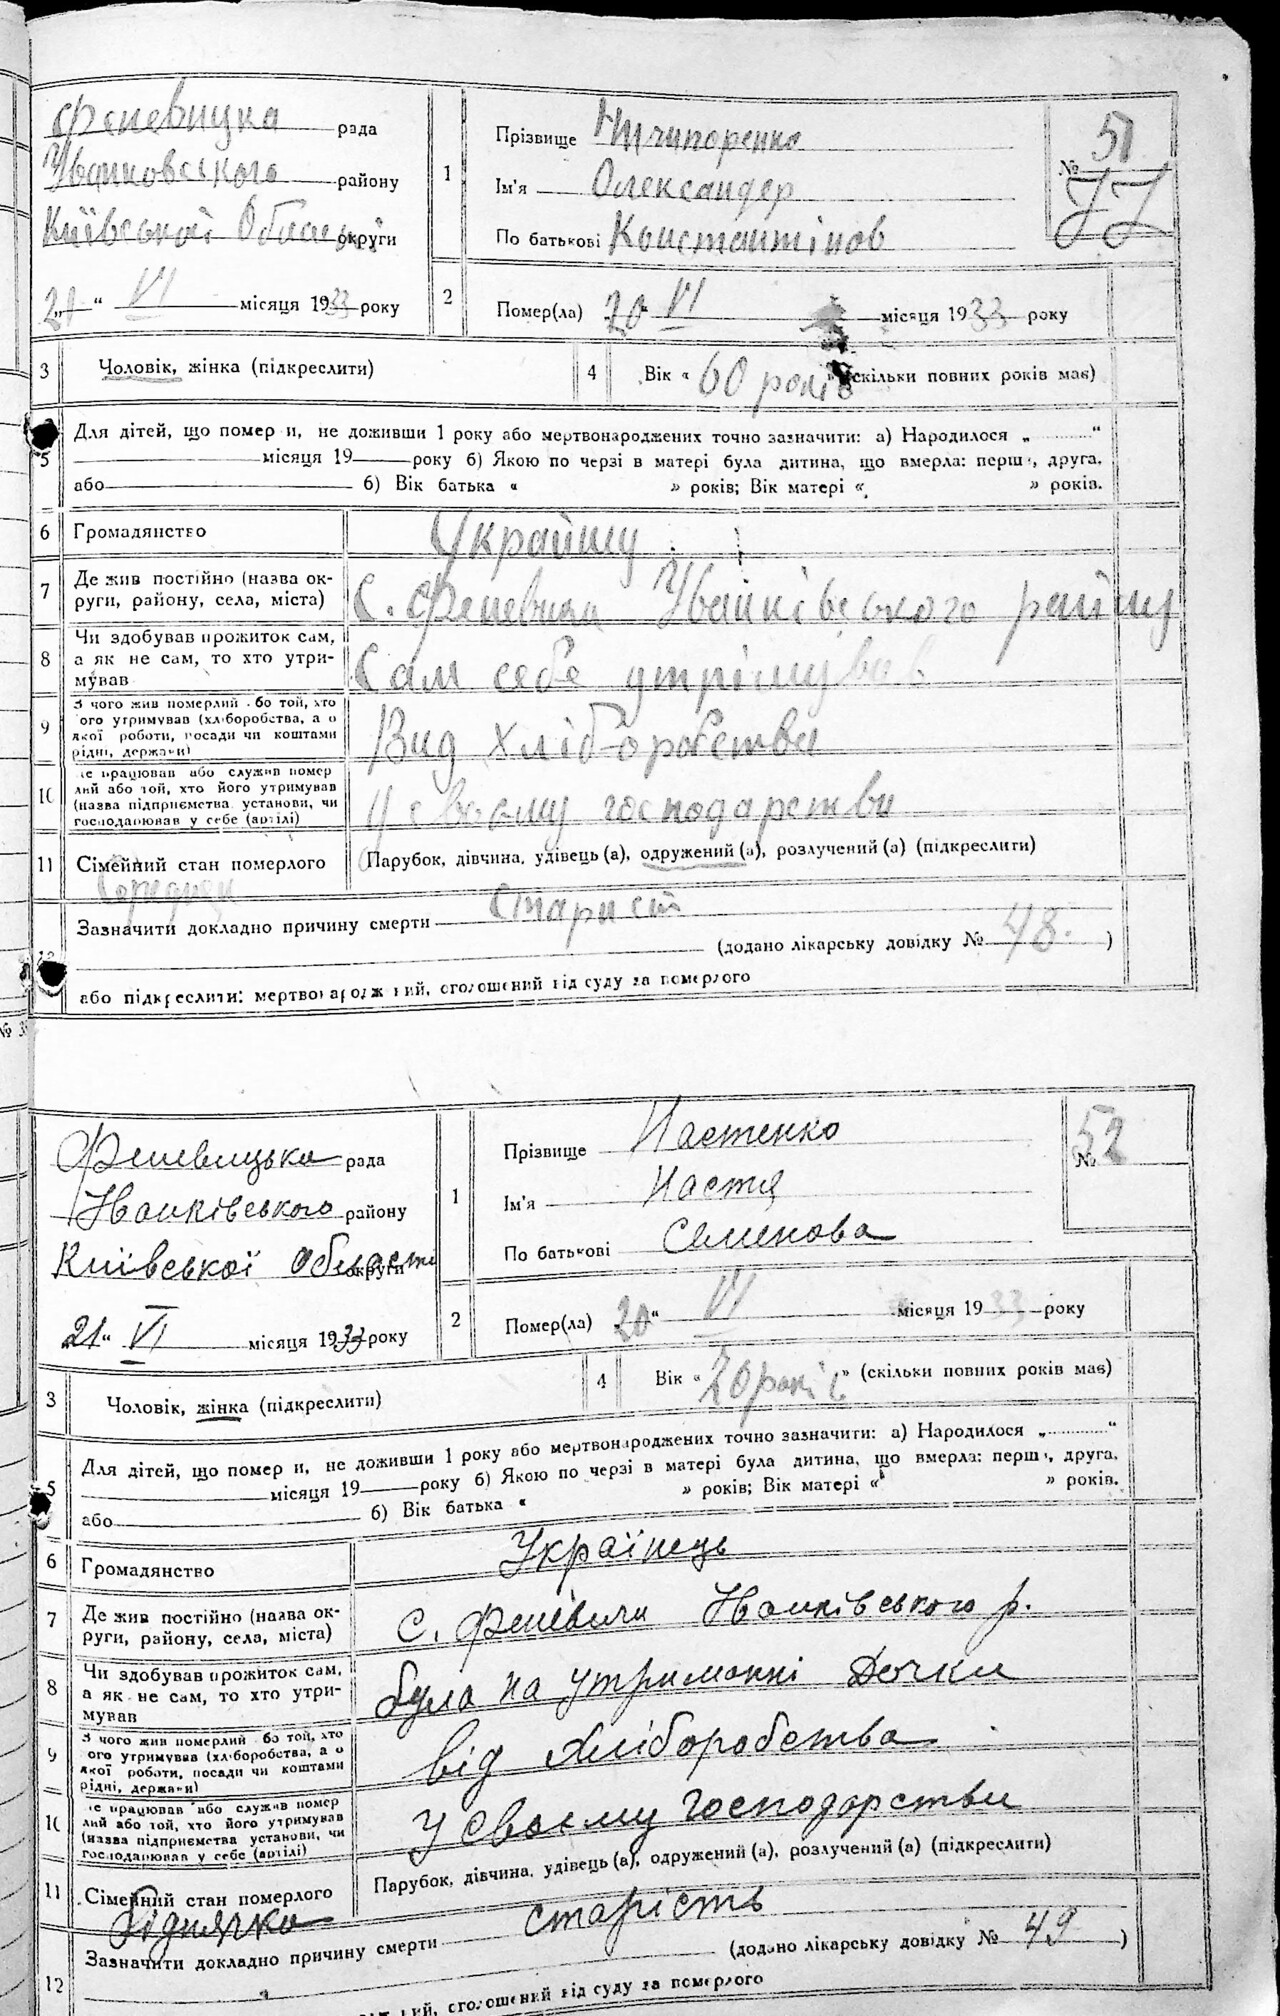 Феневицка рада
Иванковського району
Київської Області округи
21 " VI місяця 1933 року
1
Прізвище Ничипоренко
Ім'я Олександер
По батькові Константінов
№ 51
2
Помер(ла) 20 " VI місяця 1933 року
3 Чоловік, жінка (підкреслити)
4 Вік « 60 років » (скільки повних років має)
5
Для дітей, що помер и, не доживши 1 року або мертвонароджених точно зазначити: а) Народилося „ “
місяця 19 року б) Якою по черзі в матері була дитина, що вмерла: перша, друга,
або б) Вік батька « » років; Вік матері « » років.
6 Громадянство
7 Де жив постійно (назва ок-
руги, району, села, міста)
С. Феневичи Иванківського району
8 Чи здобував прожиток сам,
а як не сам, то хто утри-
мував
Сам себе утрімував
9 З чого жив померлий або той, хто
ого утримував (хліборобства, а о
якої роботи, посади чи коштами
рідні, держави)
Вид хліборобства
10 е працював або служив помер
лий або той, хто його утримував
(назва підприємства установи, чи
господарював у себе (артілі)
у своєму господарстви
11 Сімейний стан померлого
Парубок, дівчина, удівець(а), одружений (а), розлучений (а) (підкреслити)
Середняк
12
Зазначити докладно причину смерти Старист
(додано лікарську довідку № 48. )
або підкреслити: мертвонароджений, оголошений від суду за померлого
№ 3
Феневицька рада
Иванківського району
Київської області округи
21 " VI місяця 1933 року
1
Прізвище Настенко
Ім'я Настя
По батькові Семенова
№ 52
2
Помер(ла) 20 " VI місяця 1933 року
3 Чоловік, жінка (підкреслити)
4 Вік « 70 років » (скільки повних років має)
5
Для дітей, що помер и, не доживши 1 року або мертвонароджених точно зазначити: а) Народилося „ “
місяця 19 року б) Якою по черзі в матері була дитина, що вмерла: перша, друга,
або б) Вік батька « » років; Вік матері « » років.
6 Громадянство Українець
7 Де жив постійно (назва ок-
руги, району, села, міста)
с. Феневичи Иванківського р.
8 Чи здобував прожиток сам,
а як не сам, то хто утри-
мував
була на утриманні Дочки
9 З чого жив померлий або той, хто
ого утримував (хліборобства, а о
якої роботи, посади чи коштами
рідні, держави)
від хліборобства
10 е працював або служив помер
лий або той, хто його утримував
(назва підприємства установи, чи
господарював у себе (артілі)
у своєму господарстви
11 Сімейний стан померлого
Парубок, дівчина, удівець(а), одружений (а), розлучений (а) (підкреслити)
біднячка
12
Зазначити докладно причину смерти старість
(додано лікарську довідку № 49 )
ий, оголошений від суду за померлого